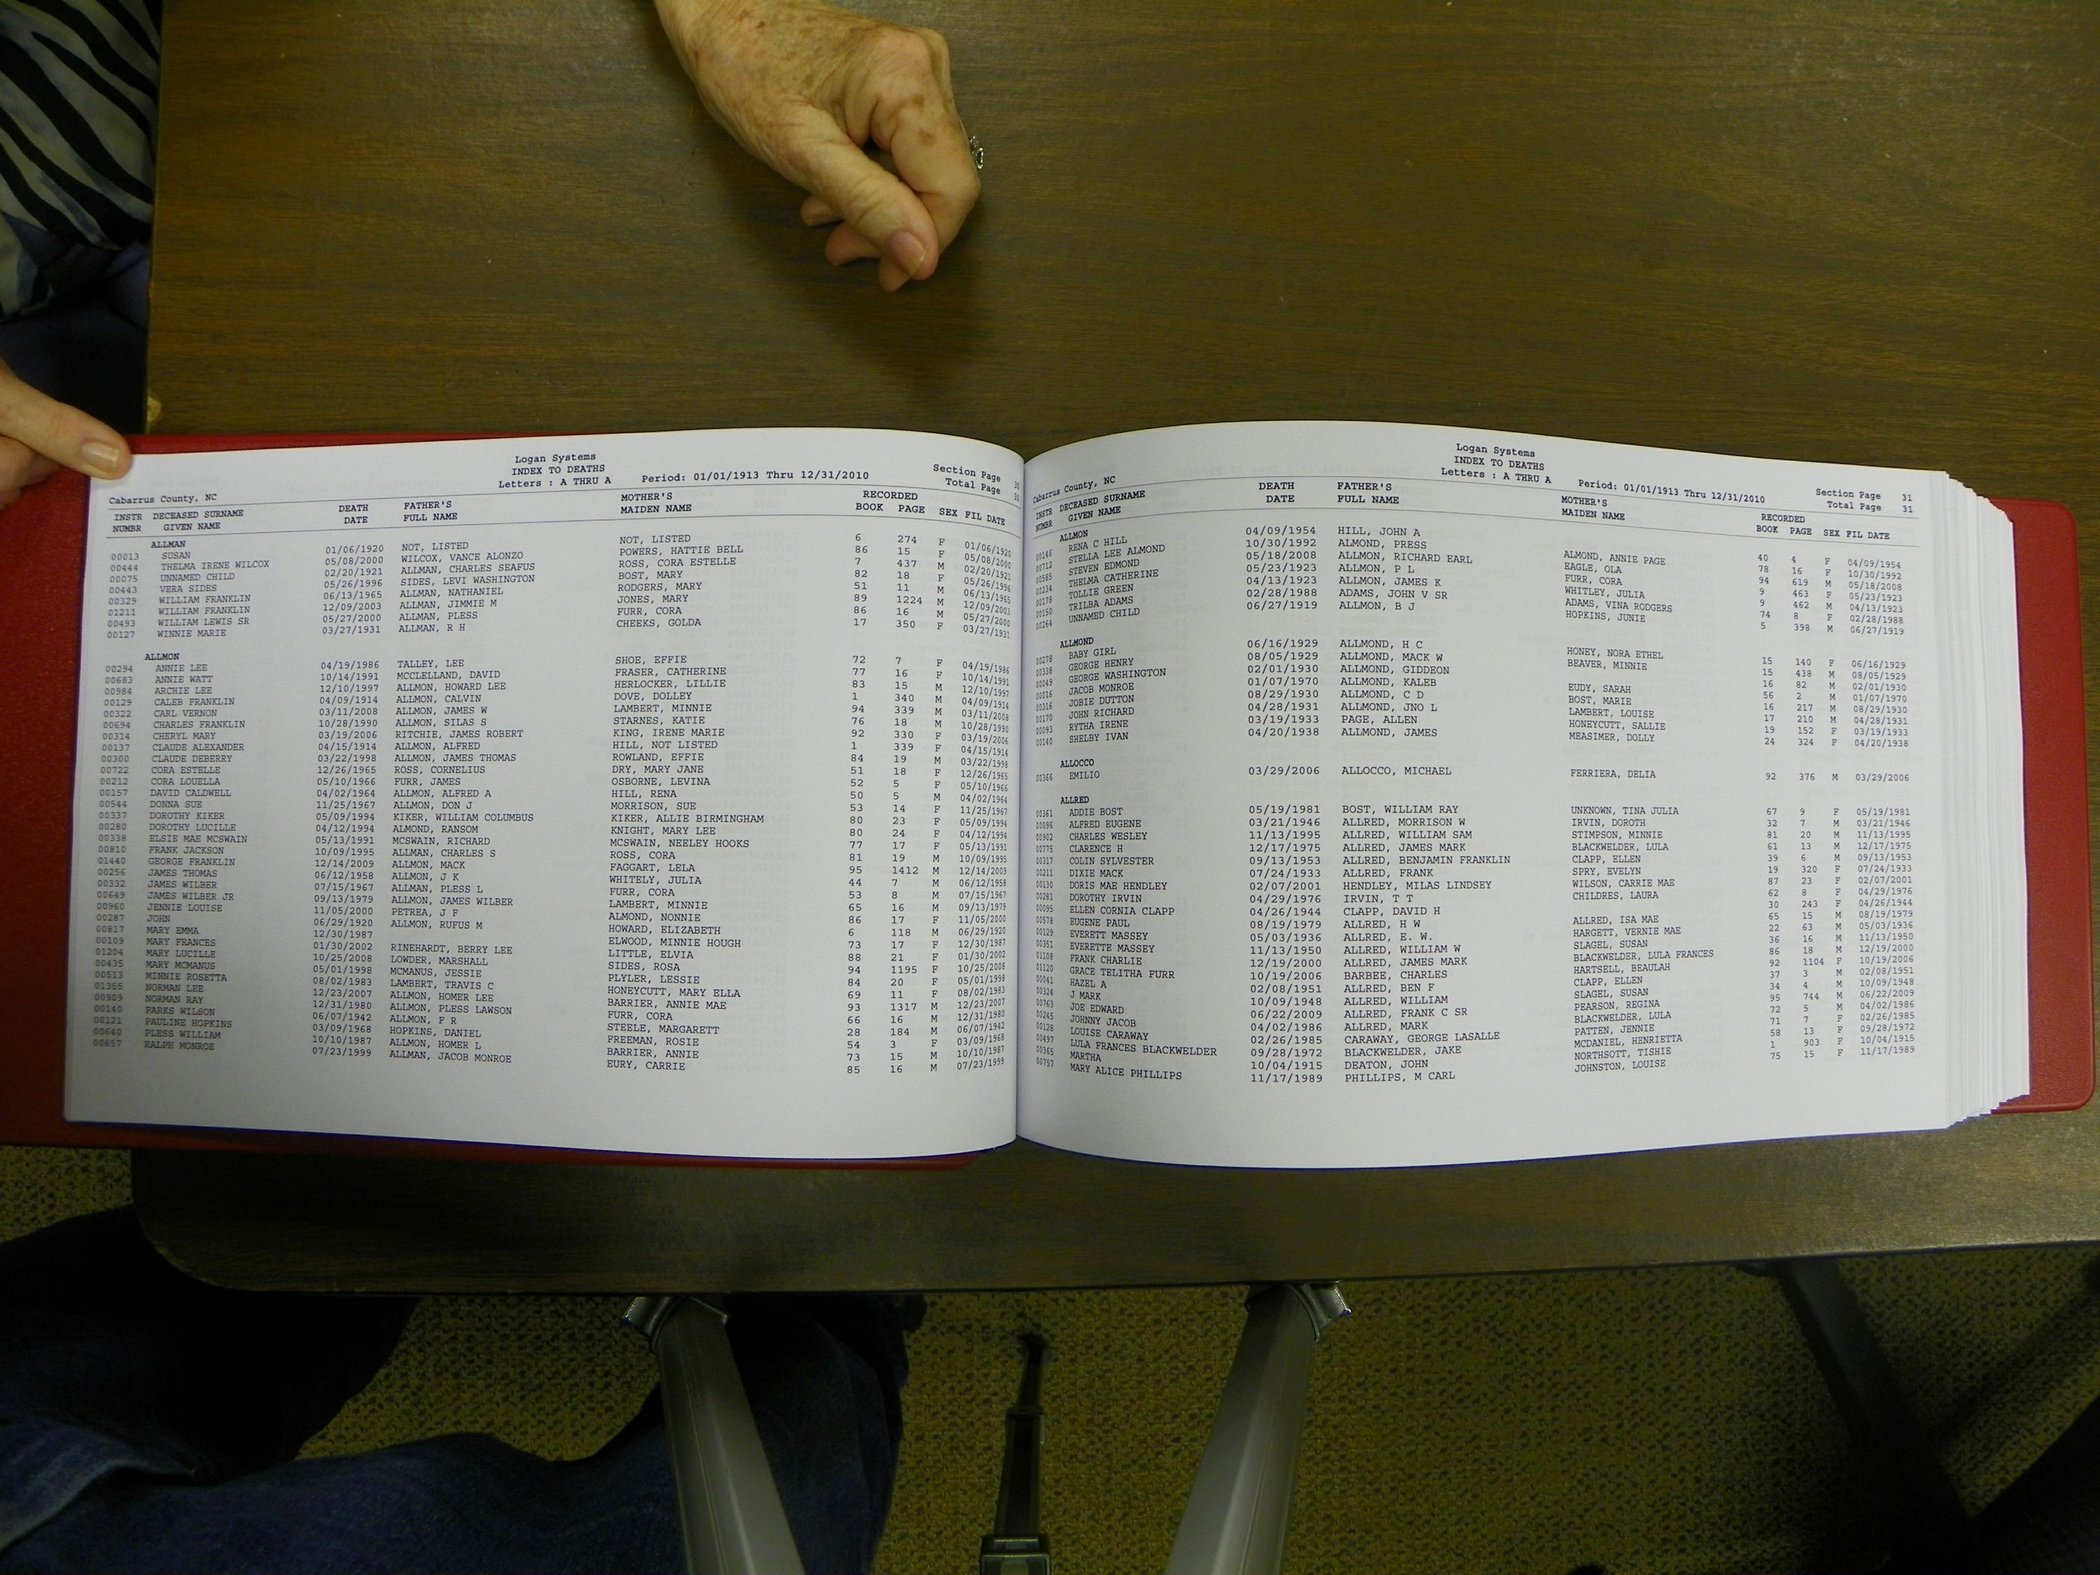 Logan Systems
INDEX TO DEATHS
Letters : A THRU A Period: 01/01/1913 Thru 12/31/2010
Section Page 30
Total Page 30
Cabarrus County, NC
INSTR DECEASED SURNAME DEATH FATHER'S MOTHER'S RECORDED
NUMBR GIVEN NAME DATE FULL NAME MAIDEN NAME BOOK PAGE SEX FIL DATE
ALLMAN
00013 SUSAN 01/06/1920 NOT, LISTED NOT, LISTED 6 274 F 01/06/1920
00444 THELMA IRENE WILCOX 05/08/2000 WILCOX, VANCE ALONZO POWERS, HATTIE BELL 86 15 F 05/08/2000
00075 UNNAMED CHILD 02/20/1921 ALLMAN, CHARLES SEAFUS ROSS, CORA ESTELLE 7 437 M 02/20/1921
00443 VERA SIDES 05/26/1996 SIDES, LEVI WASHINGTON BOST, MARY 82 18 F 05/26/1996
00329 WILLIAM FRANKLIN 06/13/1965 ALLMAN, NATHANIEL RODGERS, MARY 51 11 M 06/13/1965
01211 WILLIAM FRANKLIN 12/09/2003 ALLMAN, JIMMIE M JONES, MARY 89 1224 M 12/09/2003
00493 WILLIAM LEWIS SR 05/27/2000 ALLMAN, PLESS FURR, CORA 86 16 M 05/27/2000
00127 WINNIE MARIE 03/27/1931 ALLMAN, R H CHEEKS, GOLDA 17 350 F 03/27/1931
ALLMON
00294 ANNIE LEE 04/19/1986 TALLEY, LEE SHOE, EFFIE 72 7 F 04/19/1986
00683 ANNIE WATT 10/14/1991 MCCLELLAND, DAVID FRASER, CATHERINE 77 16 F 10/14/1991
00984 ARCHIE LEE 12/10/1997 ALLMON, HOWARD LEE HERLOCKER, LILLIE 83 15 M 12/10/1997
00129 CALEB FRANKLIN 04/09/1914 ALLMON, CALVIN DOVE, DOLLEY 1 340 M 04/09/1914
00322 CARL VERNON 03/11/2008 ALLMON, JAMES W LAMBERT, MINNIE 94 339 M 03/11/2008
00694 CHARLES FRANKLIN 10/28/1990 ALLMON, SILAS S STARNES, KATIE 76 18 M 10/28/1990
00314 CHERYL MARY 03/19/2006 RITCHIE, JAMES ROBERT KING, IRENE MARIE 92 330 F 03/19/2006
00137 CLAUDE ALEXANDER 04/15/1914 ALLMON, ALFRED HILL, NOT LISTED 1 339 F 04/15/1914
00300 CLAUDE DEBERRY 03/22/1998 ALLMON, JAMES THOMAS ROWLAND, EFFIE 84 19 M 03/22/1998
00722 CORA ESTELLE 12/26/1965 ROSS, CORNELIUS DRY, MARY JANE 51 18 F 12/26/1965
00212 CORA LOUELLA 05/10/1966 FURR, JAMES OSBORNE, LEVINA 52 5 F 05/10/1966
00157 DAVID CALDWELL 04/02/1964 ALLMON, ALFRED A HILL, RENA 50 5 M 04/02/1964
00544 DONNA SUE 11/25/1967 ALLMON, DON J MORRISON, SUE 53 14 F 11/25/1967
00337 DOROTHY KIKER 05/09/1994 KIKER, WILLIAM COLUMBUS KIKER, ALLIE BIRMINGHAM 80 23 F 05/09/1994
00280 DOROTHY LUCILLE 04/12/1994 ALMOND, RANSOM KNIGHT, MARY LEE 80 24 F 04/12/1994
00338 ELSIE MAE MCSWAIN 05/13/1991 MCSWAIN, RICHARD MCSWAIN, NEELEY HOOKS 77 17 F 05/13/1991
00810 FRANK JACKSON 10/09/1995 ALLMAN, CHARLES S ROSS, CORA 81 19 M 10/09/1995
01440 GEORGE FRANKLIN 12/14/2009 ALLMON, MACK FAGGART, LELA 95 1412 M 12/14/2009
00256 JAMES THOMAS 06/12/1958 ALLMON, J K WHITELY, JULIA 44 7 M 06/12/1958
00332 JAMES WILBER 07/15/1967 ALLMAN, PLESS L FURR, CORA 53 8 M 07/15/1967
00649 JAMES WILBER JR 09/13/1979 ALLMON, JAMES WILBER LAMBERT, MINNIE 65 16 M 09/13/1979
00960 JENNIE LOUISE 11/05/2000 PETREA, J F ALMOND, NONNIE 86 17 F 11/05/2000
00287 JOHN 06/29/1920 ALLMON, RUFUS M HOWARD, ELIZABETH 6 118 M 06/29/1920
00817 MARY EMMA 12/30/1987 ELWOOD, MINNIE HOUGH 73 17 F 12/30/1987
00109 MARY FRANCES 01/30/2002 RINEHARDT, BERRY LEE LITTLE, ELVIA 88 21 F 01/30/2002
01204 MARY LUCILLE 10/25/2008 LOWDER, MARSHALL SIDES, ROSA 94 1195 F 10/25/2008
00435 MARY MCMANUS 05/01/1998 MCMANUS, JESSIE PLYLER, LESSIE 84 20 F 05/01/1998
00513 MINNIE ROSETTA 08/02/1983 LAMBERT, TRAVIS C HONEYCUTT, MARY ELLA 69 11 F 08/02/1983
01355 NORMAN LEE 12/23/2007 ALLMON, HOMER LEE BARRIER, ANNIE MAE 93 1317 M 12/23/2007
00909 NORMAN RAY 12/31/1980 ALLMON, PLESS LAWSON FURR, CORA 66 16 M 12/31/1980
00140 PARKS WILSON 06/07/1942 ALLMON, F R STEELE, MARGARETT 28 184 M 06/07/1942
00121 PAULINE HOPKINS 03/09/1968 HOPKINS, DANIEL FREEMAN, ROSIE 54 3 F 03/09/1968
00640 PLESS WILLIAM 10/10/1987 ALLMON, HOMER L BARRIER, ANNIE 73 15 M 10/10/1987
00657 RALPH MONROE 07/23/1999 ALLMAN, JACOB MONROE EURY, CARRIE 85 16 M 07/23/1999
Logan Systems
INDEX TO DEATHS
Letters : A THRU A Period: 01/01/1913 Thru 12/31/2010
Section Page 31
Total Page 31
Cabarrus County, NC
INSTR DECEASED SURNAME DEATH FATHER'S MOTHER'S RECORDED
NUMBR GIVEN NAME DATE FULL NAME MAIDEN NAME BOOK PAGE SEX FIL DATE
ALLMON
00146 RENA C HILL 04/09/1954 HILL, JOHN A 40 4 F 04/09/1954
00712 STELLA LEE ALMOND 10/30/1992 ALMOND, PRESS ALMOND, ANNIE PAGE 78 16 F 10/30/1992
00585 STEVEN EDMOND 05/18/2008 ALLMON, RICHARD EARL EAGLE, OLA 94 619 M 05/18/2008
00234 THELMA CATHERINE 05/23/1923 ALLMON, P L FURR, CORA 9 463 F 05/23/1923
00178 TOLLIE GREEN 04/13/1923 ALLMON, JAMES K WHITLEY, JULIA 9 462 M 04/13/1923
00150 TRILBA ADAMS 02/28/1988 ADAMS, JOHN V SR ADAMS, VINA RODGERS 74 8 F 02/28/1988
00264 UNNAMED CHILD 06/27/1919 ALLMON, B J HOPKINS, JUNIE 5 398 M 06/27/1919
ALLMOND
00278 BABY GIRL 06/16/1929 ALLMOND, H C HONEY, NORA ETHEL 15 140 F 06/16/1929
00338 GEORGE HENRY 08/05/1929 ALLMOND, MACK W BEAVER, MINNIE 15 438 M 08/05/1929
00049 GEORGE WASHINGTON 02/01/1930 ALLMOND, GIDDEON 16 82 M 02/01/1930
00016 JACOB MONROE 01/07/1970 ALLMOND, KALEB EUDY, SARAH 56 2 M 01/07/1970
00316 JOBIE DUTTON 08/29/1930 ALLMOND, C D BOST, MARIE 16 217 M 08/29/1930
00170 JOHN RICHARD 04/28/1931 ALLMOND, JNO L LAMBERT, LOUISE 17 210 M 04/28/1931
00093 RYTHA IRENE 03/19/1933 PAGE, ALLEN HONEYCUTT, SALLIE 19 152 F 03/19/1933
00140 SHELBY IVAN 04/20/1938 ALLMOND, JAMES MEASIMER, DOLLY 24 324 F 04/20/1938
ALLOCCO
00366 EMILIO 03/29/2006 ALLOCCO, MICHAEL FERRIERA, DELIA 92 376 M 03/29/2006
ALLRED
00361 ADDIE BOST 05/19/1981 BOST, WILLIAM RAY UNKNOWN, TINA JULIA 67 9 F 05/19/1981
00096 ALFRED EUGENE 03/21/1946 ALLRED, MORRISON W IRVIN, DOROTH 32 7 M 03/21/1946
00902 CHARLES WESLEY 11/13/1995 ALLRED, WILLIAM SAM STIMPSON, MINNIE 81 20 M 11/13/1995
00775 CLARENCE H 12/17/1975 ALLRED, JAMES MARK BLACKWELDER, LULA 61 13 M 12/17/1975
00317 COLIN SYLVESTER 09/13/1953 ALLRED, BENJAMIN FRANKLIN CLAPP, ELLEN 39 6 M 09/13/1953
00211 DIXIE MACK 07/24/1933 ALLRED, FRANK SPRY, EVELYN 19 320 F 07/24/1933
00130 DORIS MAE HENDLEY 02/07/2001 HENDLEY, MILAS LINDSEY WILSON, CARRIE MAE 87 23 F 02/07/2001
00281 DOROTHY IRVIN 04/29/1976 IRVIN, T T CHILDRES, LAURA 62 8 F 04/29/1976
00095 ELLEN CORNIA CLAPP 04/26/1944 CLAPP, DAVID H 30 243 F 04/26/1944
00578 EUGENE PAUL 08/19/1979 ALLRED, H W ALLRED, ISA MAE 65 15 M 08/19/1979
00129 EVERETT MASSEY 05/03/1936 ALLRED, E. W. HARGETT, VERNIE MAE 22 63 M 05/03/1936
00351 EVERETTE MASSEY 11/13/1950 ALLRED, WILLIAM W SLAGEL, SUSAN 36 16 M 11/13/1950
01108 FRANK CHARLIE 12/19/2000 ALLRED, JAMES MARK BLACKWELDER, LULA FRANCES 86 18 M 12/19/2000
01120 GRACE TELITHA FURR 10/19/2006 BARBEE, CHARLES HARTSELL, BEAULAH 92 1104 F 10/19/2006
00041 HAZEL A 02/08/1951 ALLRED, BEN F CLAPP, ELLEN 37 3 M 02/08/1951
00324 J MARK 10/09/1948 ALLRED, WILLIAM SLAGEL, SUSAN 34 4 M 10/09/1948
00763 JOE EDWARD 06/22/2009 ALLRED, FRANK C SR PEARSON, REGINA 95 744 M 06/22/2009
00245 JOHNNY JACOB 04/02/1986 ALLRED, MARK BLACKWELDER, LULA 72 5 M 04/02/1986
00128 LOUISE CARAWAY 02/26/1985 CARAWAY, GEORGE LASALLE PATTEN, JENNIE 71 7 F 02/26/1985
00497 LULA FRANCES BLACKWELDER 09/28/1972 BLACKWELDER, JAKE MCDANIEL, HENRIETTA 58 13 F 09/28/1972
00365 MARTHA 10/04/1915 DEATON, JOHN NORTHSOTT, TISHIE 1 903 F 10/04/1915
00757 MARY ALICE PHILLIPS 11/17/1989 PHILLIPS, M CARL JOHNSTON, LOUISE 75 15 F 11/17/1989